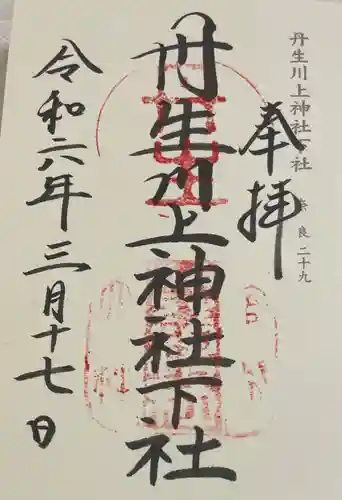 丹生川上神社下社
奈良二十九
奉拝
丹生川上神社下社
令和六年三月十七日